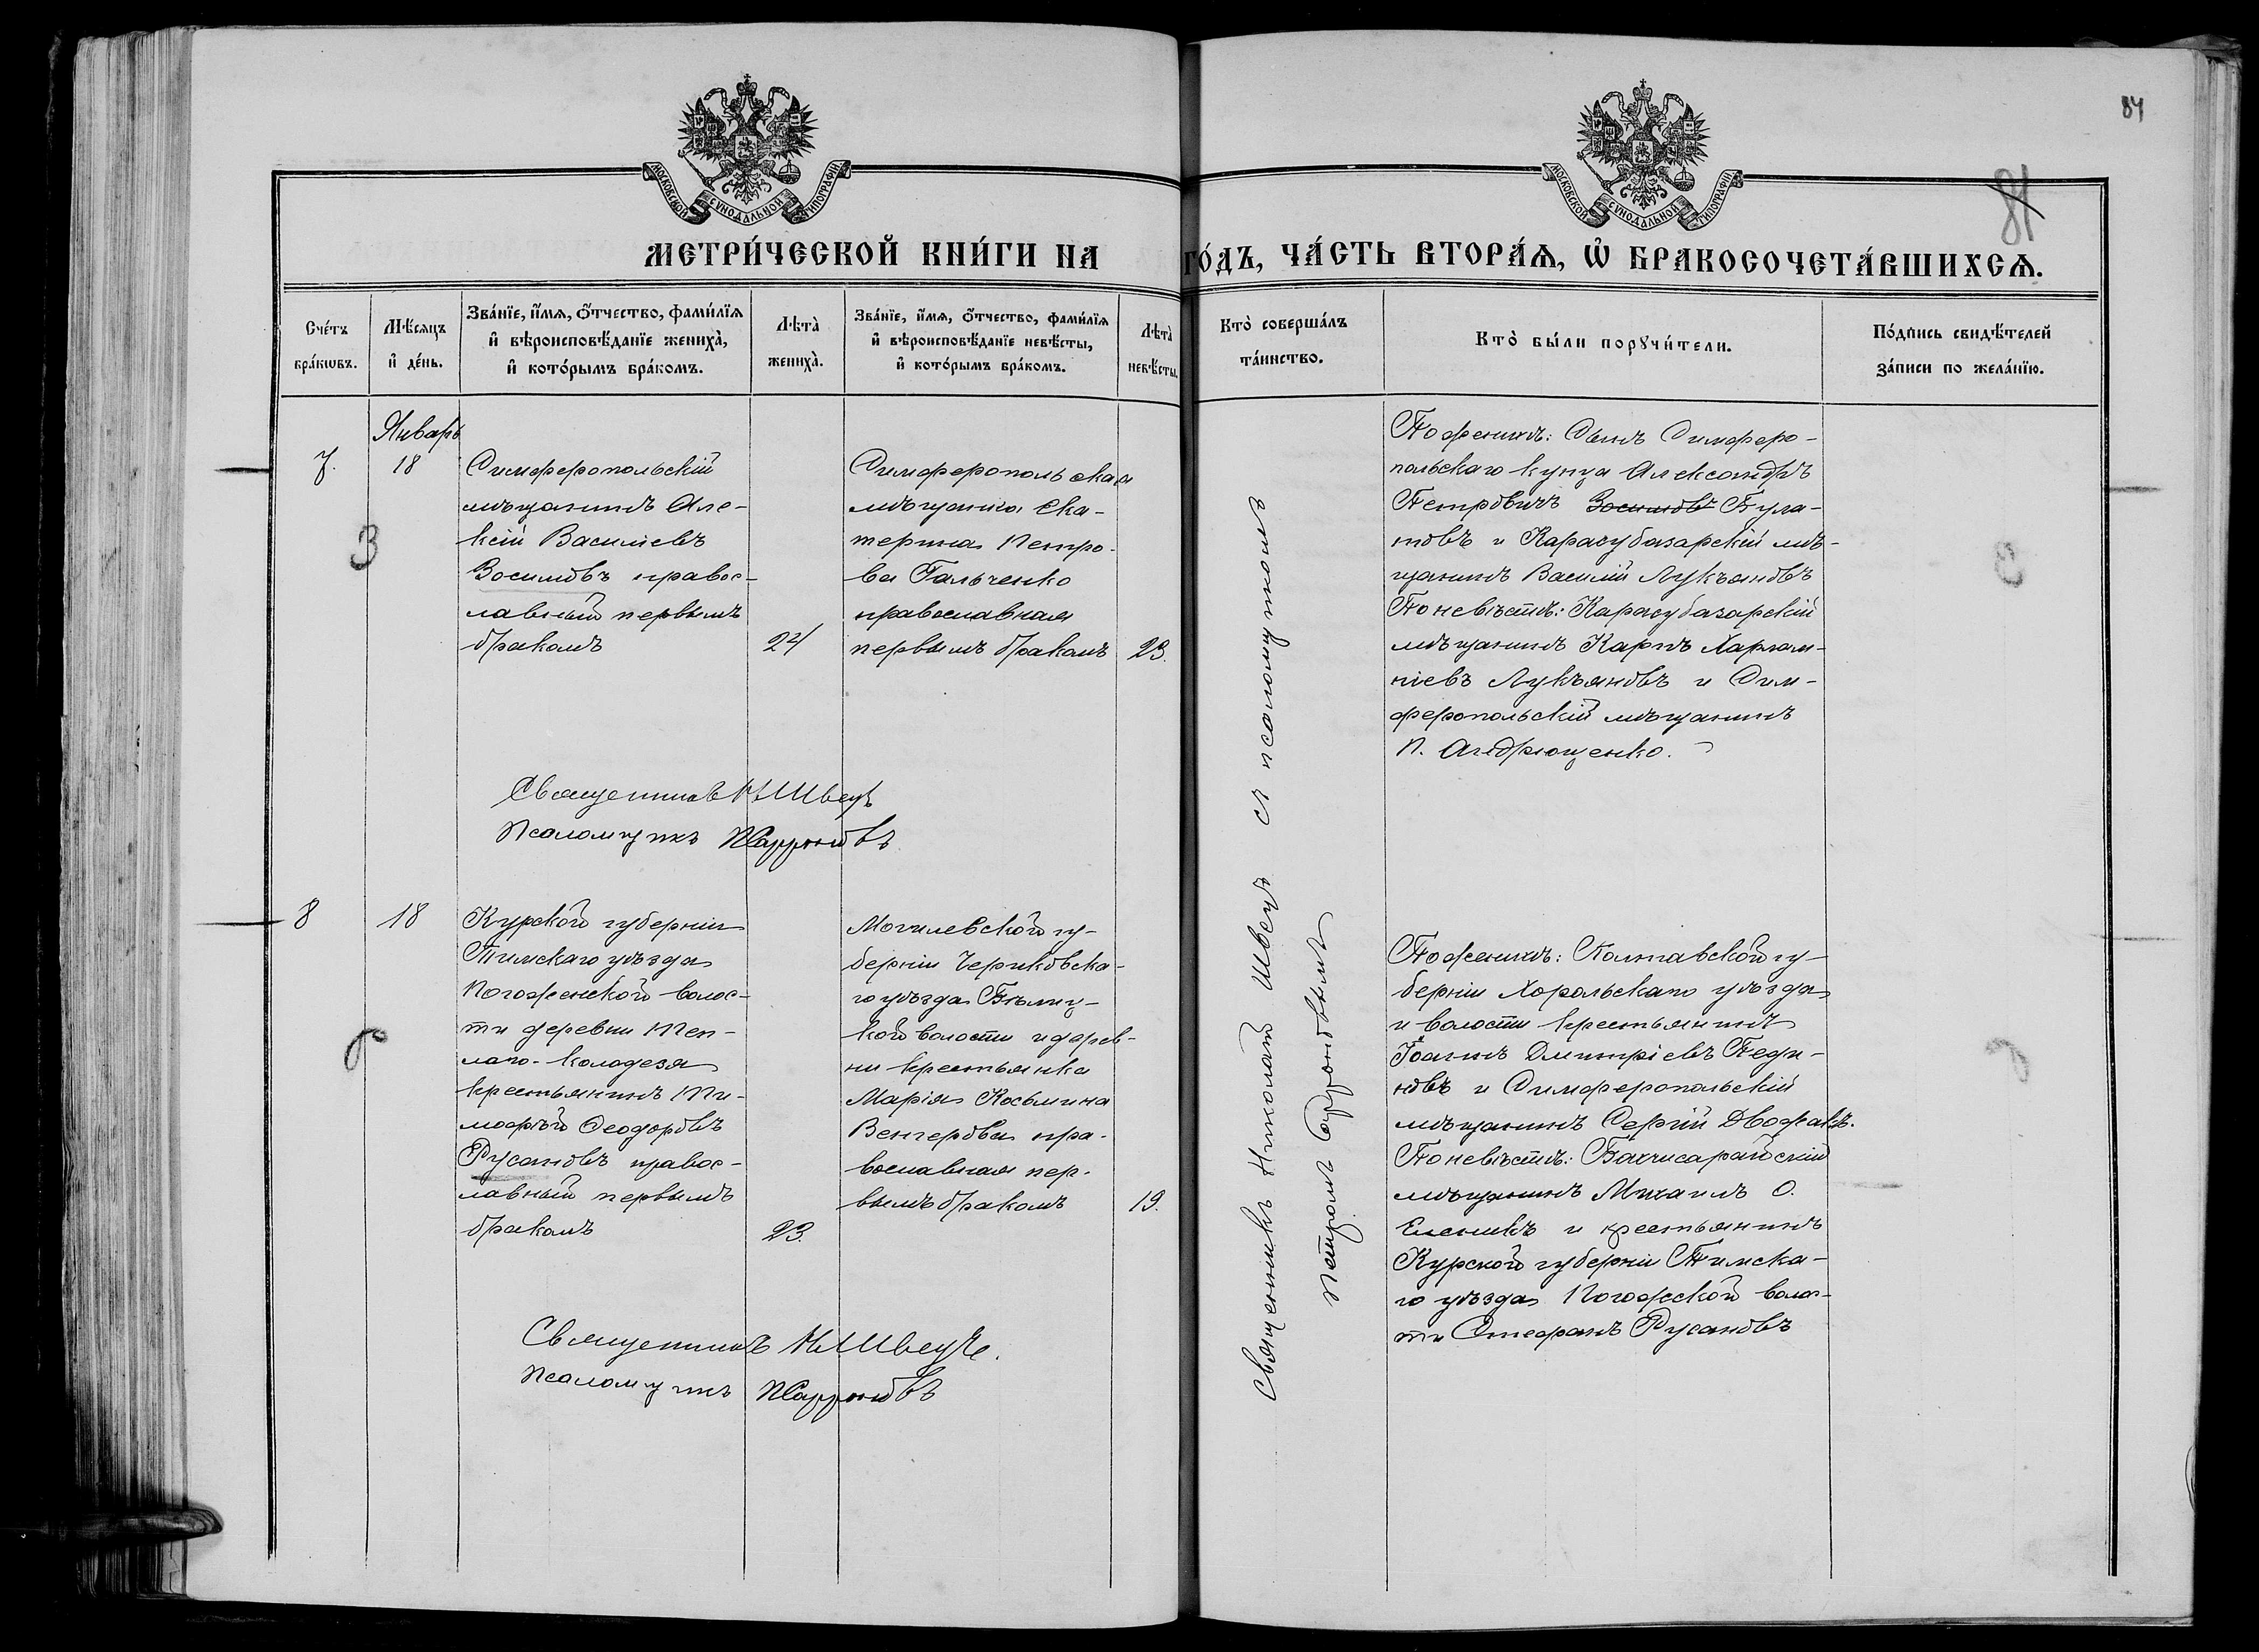 84
81
МОСКОВСКОЙ СѴНОДАЛЬНОЙ ТИПОГРАФІИ
МОСКОВСКОЙ СѴНОДАЛЬНОЙ ТИПОГРАФІИ
МЕТРИ́ЧЕСКОЙ КНИ́ГИ НА
ГО́ДЪ, ЧА́СТЬ ВТОРА́Ѧ, Ѡ҆ БРАКОСОЧЕТА́ВШИХСѦ.
Сче́тъ
бра́кѡвъ.
Мѣ́сяцъ
и҆ де́нь.
Зва́нїе, и҆́мѧ, ѻ҆́тчество, фами́лїѧ
и҆ вѣроисповѣ́данїе жениха̀,
и҆ кото́рымъ бра́комъ.
Лѣта̀
жениха̀.
Зва́нїе, и҆́мѧ, ѻ҆́тчество, фами́лїѧ
и҆ вѣроисповѣ́данїе невѣ́сты,
и҆ кото́рымъ бра́комъ.
Лѣта̀
невѣ́сты.
Кто̀ соверша́лъ
та́инство.
Кто̀ бы́ли порꙋчи́тели.
По́дпись свидѣ́телей
за́писи по жела́нїю.
Январь
7.
18
З
Симферопольскій
мѣщанинъ Але-
ксій Василіевъ
Зосимовъ правос-
лавный первымъ
бракомъ
24
Симферопольская
мѣщанка Ека-
терина Петро-
ва Гальченко
православная
первымъ бракомъ
23.
Священникъ Н. Швецъ
Псаломщикъ П. Сафроновъ
Священникъ Николай Швецъ съ псаломщикомъ
Петромъ Сафроновымъ
По женихѣ: Сынъ Симферо-
польскаго купца Александръ
Петровичъ Зосимовъ Була-
товъ и Карасубазарскій мѣ-
щанинъ Василій Лукьяновъ
По невѣстѣ: Карасубазарскій
мѣщанинъ Карпъ Харлам-
піевъ Лукьяновъ и Сим-
феропольскій мѣщанинъ
П. Андрющенко.
8
18
Р
Курской губерніи
Тимскаго уѣзда
Погоженской волос-
ти деревни Теп-
лаго-Колодезя
крестьянинъ Ти-
мофѣй Ѳеодоровъ
Русановъ правос-
лавный первымъ
бракомъ
23.
Могилевской гу-
берніи Чериковска-
го уѣзда
кой волости и дерев-
ни крестьянка
Марія Косьмина
Венгерова пра-
вославная пер-
вымъ бракомъ
19.
Священникъ Н. Швецъ.
Псаломщикъ П. Сафроновъ
По женихѣ: Полтавской гу-
берніи Хорольскаго уѣзда
и волости крестьянинъ
Іоаннъ Димитріевъ
и Симферопольскій
мѣщанинъ Сергій
По невѣстѣ: Бахчисарайскій
мѣщанинъ Михаилъ О.
и крестьянинъ
Курской губерніи Тимска-
го уѣзда Погожской волос-
ти Стефанъ Русановъ